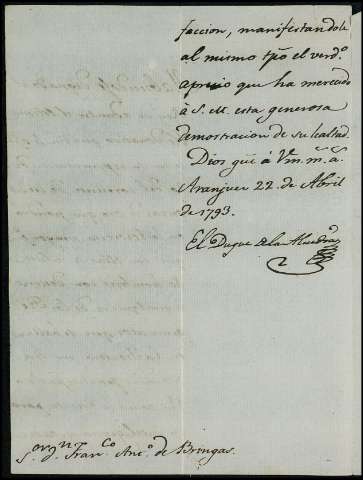 faccion, manifestandole
al mismo tpõ el verd.º
aprecio que ha merecido
à S. M. esta generosa
demostracion de su lealtad.
Dios gue à Vm. m. a.s
Aranjuez 22. de Abril
de 1793.
El Duque de la Alcudia
S.or D.n Fran.co Ant.º de Bringas.